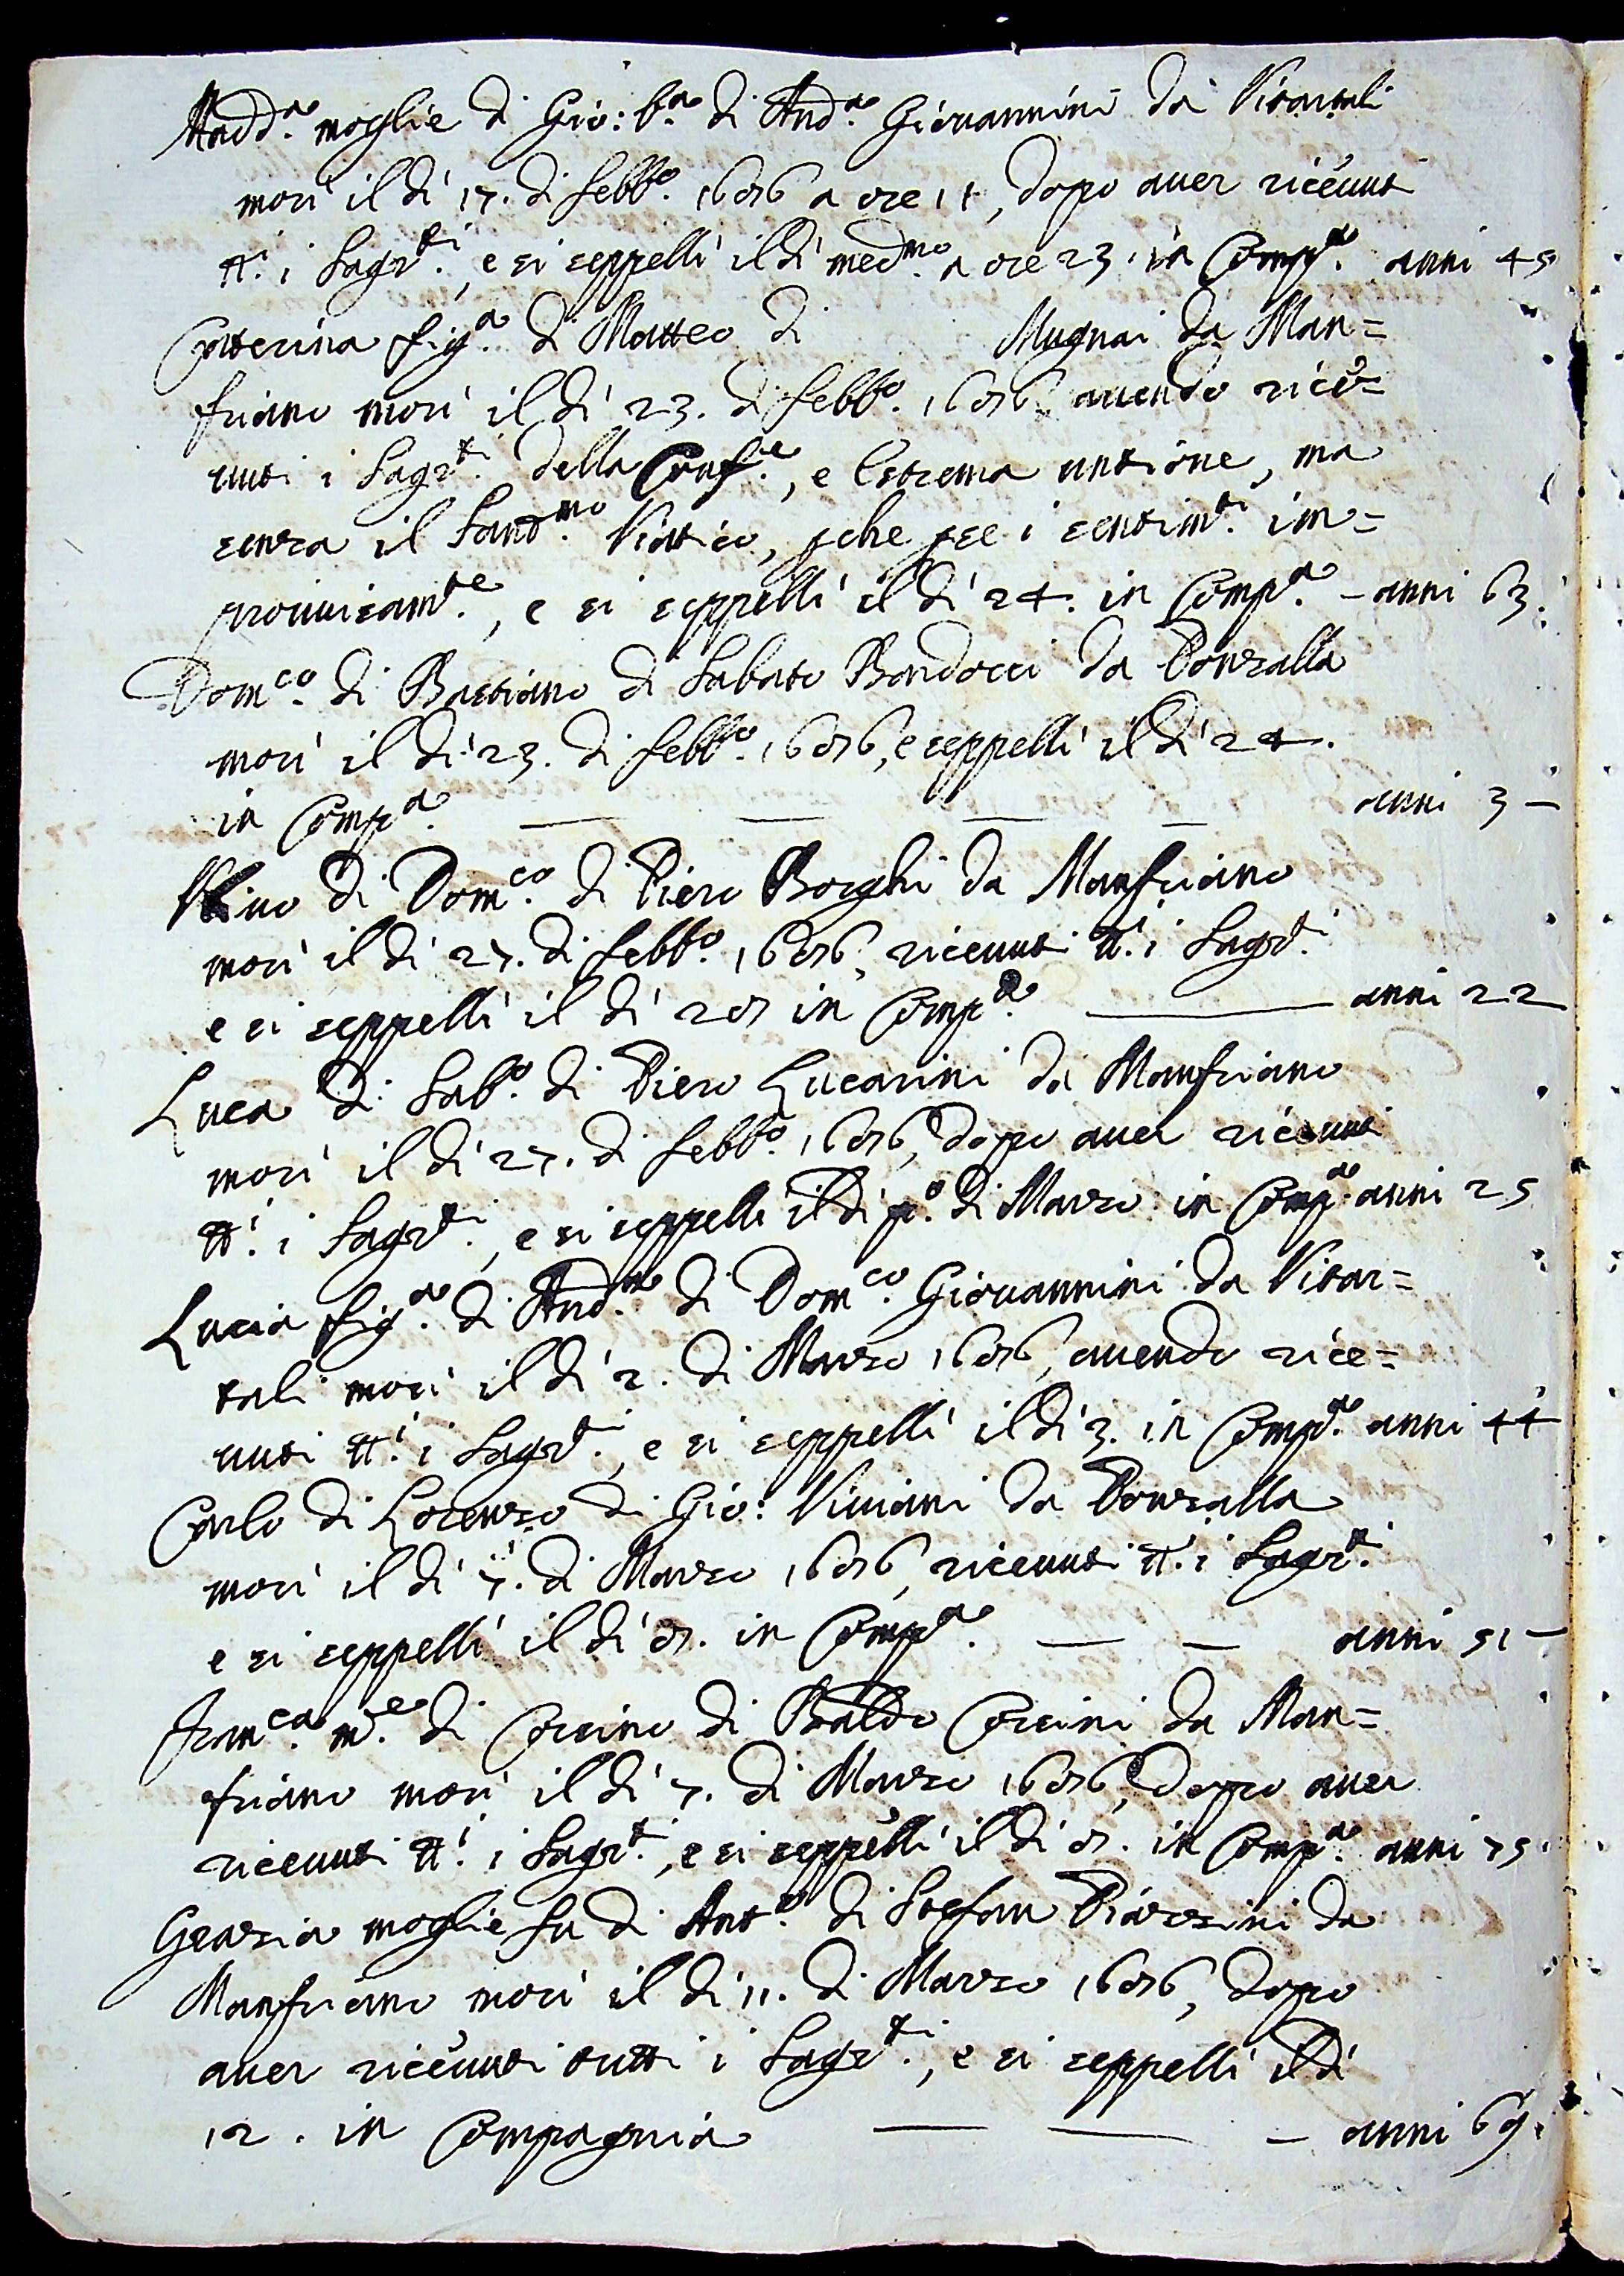 Madd.ª moglie di Gio: B.ª di And.ª Giovannini da Vitartali
morì il dì 17. di febb.º 1686 a ore 11, dopo aver riceuut
tt.i i Sagr.ti, e si seppellì il dì med.mo a ore 23. in Comp.ª anni 45
Catterina fig.ª di Matteo di Mugnai da Man=
friano morì il dì 23. di febb.º 1686, auendo rice=
uuti i Sagr.ti della Conf.e, e Estrema untione, ma
senza il Sant.mo Viatico, pche pse i sentim.ti im=
prouuisam.te, e si seppellì il dì 24. in Comp.ª - anni 63.
Dom.co di Bastiano di Sabato Bandocci da Ponzalla
morì il dì 23. di febb.º 1686, e seppellì il dì 24.
in Comp.ª — — — — anni 3 —
di Dom.co di Piero Borghi da Manfriano
morì il dì 27. di febb.º 1686, riceuuti tt.i i Sagr.ti
e si seppellì il dì 28 in Comp.ª — anni 22
Luca di Sab.º di Piero Lucarini da Manfriano
morì il dì 27. di febb.º 1686, dopo auer riceuuti
tt.i i Sagr.ti, e si seppellì il dì p.º di Marzo in Comp.ª anni 25
Lucia fig.ª di And.ª di Dom.co Giouannini da Vitar=
tali morì il dì 2. di Marzo 1686, auendo rice=
uuti tt.i i Sagr.ti, e si seppellì il dì 3. in Comp.ª anni 44
Carlo di Lorenzo di Gio: Viuiani da Ponzalla
morì il dì 7. di Marzo 1686, riceuuti tt.i i Sagr.ti
e si seppellì il dì 8. in Comp.ª — — anni 51 —
Fran.ca m.e di Corsino di Baldo Corsini da Man=
friano morì il dì 7. di Marzo 1686, dopo auer
riceuuti tt.i i Sagr.ti, e si seppellì il dì 8. in Comp.ª anni 75.
Grazia moglie fu di Ant.º di Stefan Piazzini da
Manfriano morì il dì 11. di Marzo 1686, dopo
auer riceuuti tutti i Sagr.ti, e si seppellì il dì
12. in Compagnia — — — anni 69.